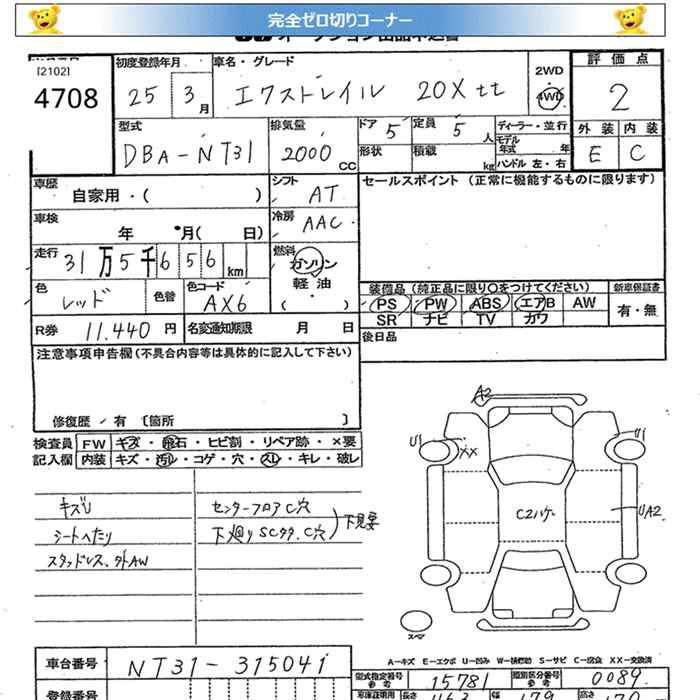 完全ゼロ切りコーナー
[2102]
4708
初度登録年月
25 3月
車名・グレード
エクストレイル 20X tt
2WD
4WD
評価点
2
型式
DBA-NT31
排気量
2000 CC
ドア 5
定員 5人
形状
積載 kg
ディーラー・並行
モデル年式 年
ハンドル 左・右
外装 内装
E C
車歴 自家用・( )
シフト AT
セールスポイント (正常に機能するものに限ります)
車検 年 月( 日)
冷房 AAC
走行 31万5千656km
燃料 ガソリン
軽油
・( )
色 レッド
色替
色コード AX6
装備品 (純正品に限り○をつけてください)
新車保証書
PS PW ABS エアB AW
有・無
SR ナビ TV カワ
R券 11.440 円
名変通知期限 月 日
後日品
注意事項申告欄 (不具合内容等は具体的に記入して下さい)
修復歴/有 〔箇所 〕
検査員 FW キズ・飛石・ヒビ割・リペア跡・×要
記入欄 内装 キズ・汚レ・コゲ・穴・スレ・キレ・破レ
キズU
シートへたり
スタッドレス、外AW
センターフロアC穴
下廻りSCタタ、C穴
下見要
A2
U1
XX
U1
C2ハゲ
UA2
スペア
A-キズ E-エクボ U-凹み W-補修跡 S-サビ C-腐食 XX-交換済
車台番号 NT31-315041
型式指定番号 15781
参考
類別区分番号 0089
参考
登録番号
車庫証明用
長さ 463
幅 179
高さ 170